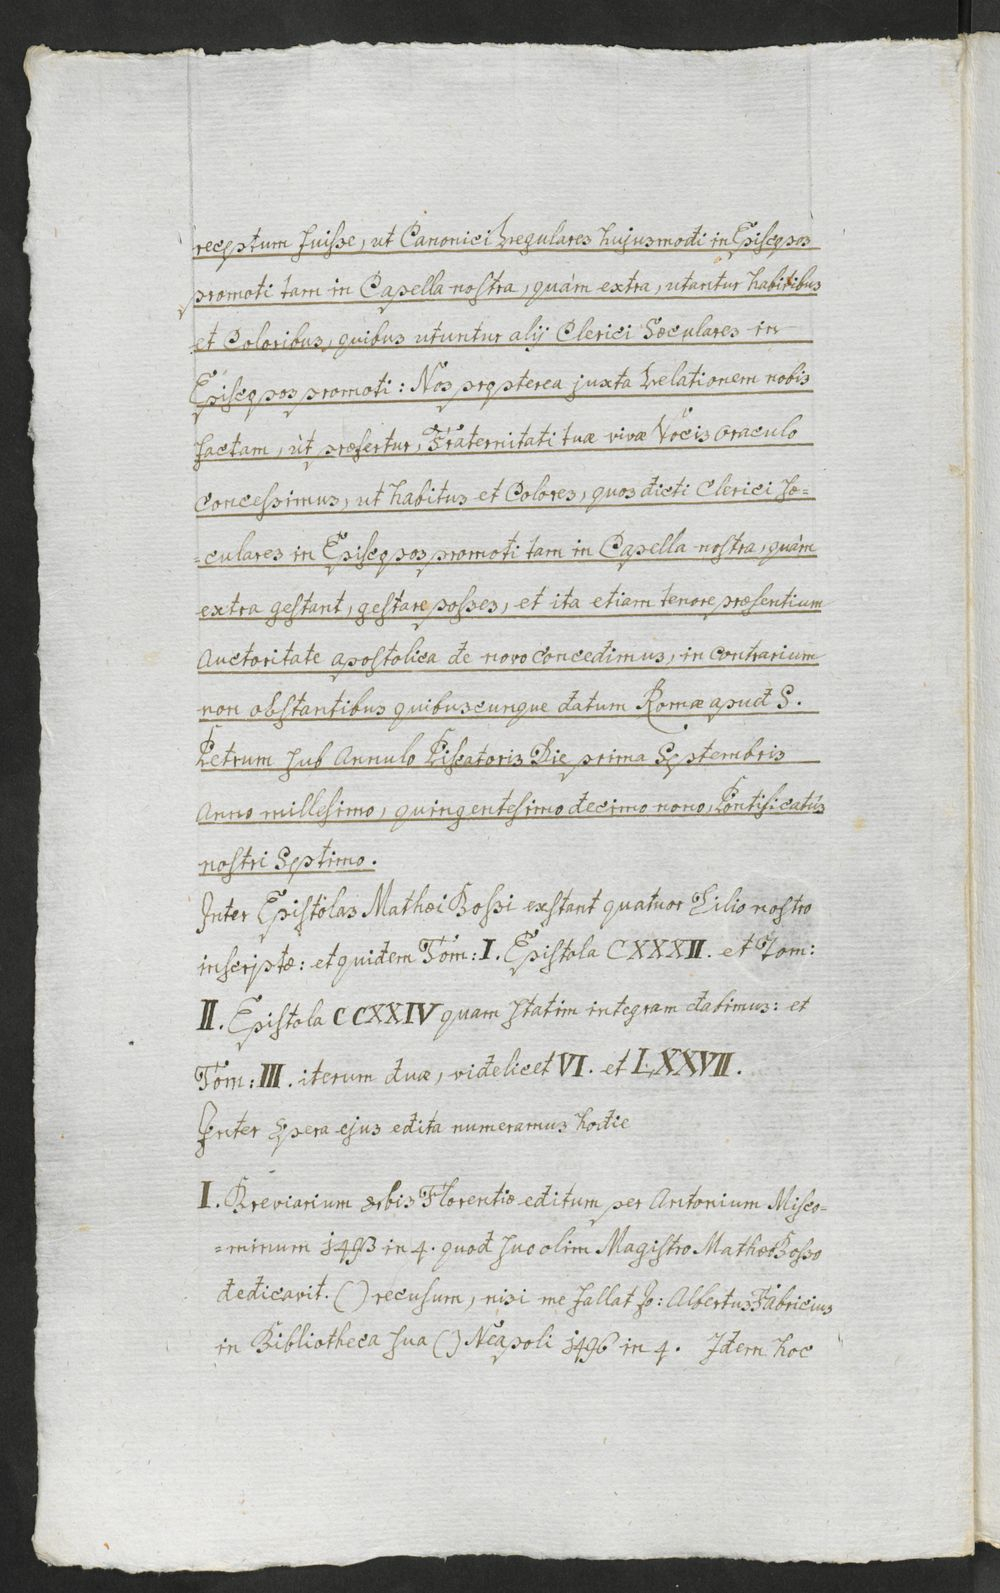 receptum fuisse, ut Canonici Regulares hujusmodi in Episcopos
promoti tam in Capella nostra, quàm extra, utantur habitibus
et Coloribus, quibus utuntur alij Clerici Sæculares in
Episcopos promoti: Nos propterea juxta Relationem nobis
factam, ùt præfertur, Fraternitati tuæ vivæ Vocis oraculo
concessimus, ut habitus et Colores, quos dicti Clerici Sæ=
=culares in Episcopos promoti tam in Capella nostra, quàm
extra gestant, gestare posses, et ita etiam tenore præsentium
Auctoritate apostolica de novo concedimus, in contrarium
non obstantibus quibuscunque datum Romæ apud S.
Petrum sub Annulo Piscatoris Die prima Septembris
Anno millesimo, quingentesimo decimo nono, Pontificatûs
nostri Septimo.
Inter Epistolas Mathæi Bossi exstant quatuor Lilio nostro
inscriptæ: et quidem Tom: I. Epistola CXXXII. et Tom:
II. Epistola CCXXIV quam statim integram dabimus: et
Tom: III. iterum duæ, videlicet VI. et LXXVII.
Inter opera ejus edita numeramus hodie
I. Breviarium orbis Florentiæ editum per Antonium Misco=
=minum 1493 in 4. quod suo olim Magistro Mathæo Bosso
dedicavit. () recusum, nisi me fallat Jo: Albertus Fabricius
in Bibliotheca sua () Neapoli 1496 in 4. Idem hoc